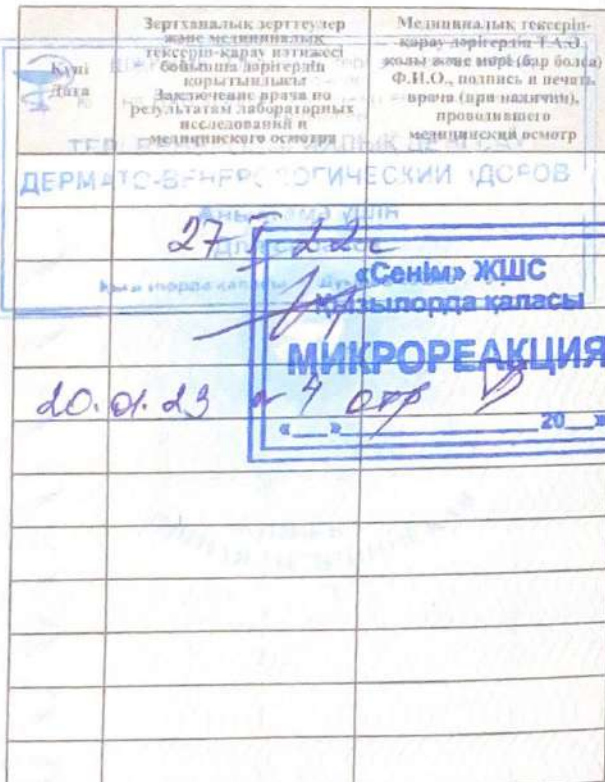 Күні
Дата
Зертханалық зерттеулер
және медициналық
тексеріп-қарау нәтижесі
бойынша дәрігердің
қорытындысы
Заключение врача по
результатам лабораторных
исследований и
медицинского осмотра
Медициналық тексеріп-
қарау дәрігердің Т.А.Ә.
қолы және мөрі (бар болса)
Ф.И.О., подпись и печать
врача (при наличии),
проводившего
медицинский осмотр
ДЕРМАТО-ВЕНЕРОЛОГИЧЕСКИЙ ЗДОРОВ
27 22г
«Сенім» ЖШС
Қызылорда қаласы
МИКРОРЕАКЦИЯ
20.01.23 № 4 отр
«___»____________20__»